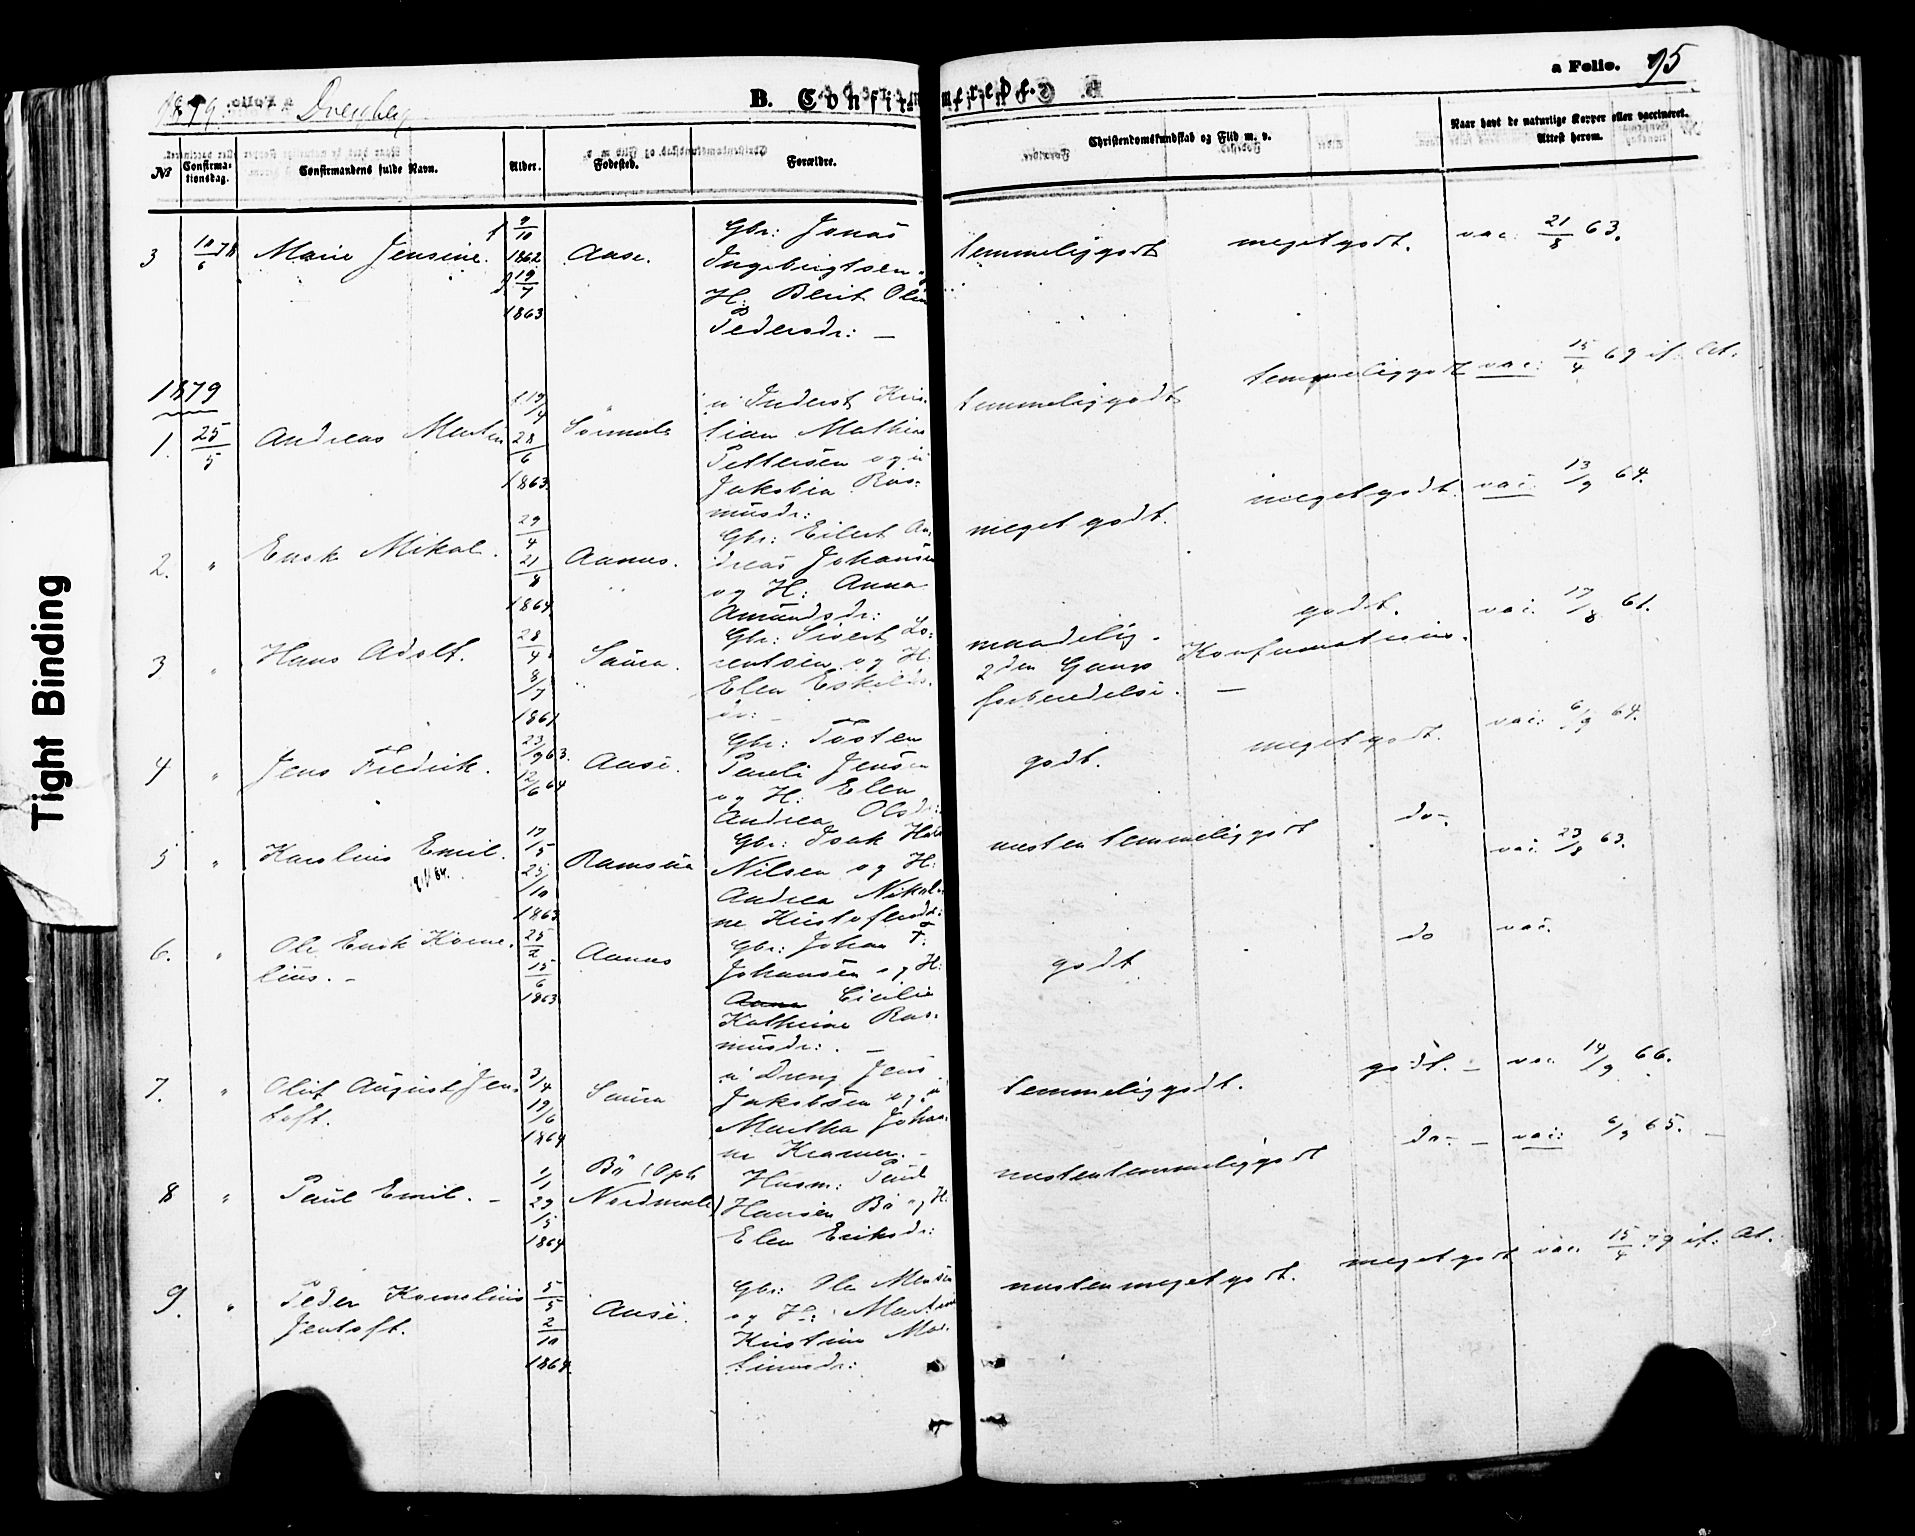 1879. Dverberg
B. Confirmerede.
a Folio. 95
No Confirmationsdag. Confirmandens fulde Navn. Alder. Fødested. Forældre. Christendomskundskab og Flid m. v. Naar havt de naturlige Kopper eller vaccineret. Attest herom.
3 10/6 78 Marie Jensine. f 9/10 1862 d 19/7 1863 Aase. Gbr: Jonas
Ingebrigtsen og
H: Berit Olin
Pedersdr: —
temmelig godt meget godt. vac: 21/8 63.
1879
1. 25/5 Andreas Morten 28/6 1863 Sørmela u: Inderst Kris-
tian Mathias
Pettersen og u:
Jakobia Ras-
musdr:
temmelig godt temmelig godt vac: 15/4 69 if: At.
2. " Enok Mikal. 29/4 21/8 1864. Aanes. Gbr: Eilert An-
dreas Johansen
og H: Anna
Amundsdr:
meget godt. meget godt. vac: 13/9 64.
3 " Hans Adolf. 28/4 8/7 1861 Saura. Gbr: Sivert Lo-
rentsen og H:
Elen Eskilds-
dr: —
maadelig.
2den Gangs Konfirmations-
forberedelse. —
godt. vac: 17/8 61.
4 " Jens Fredrik. 23/9 63. 12/6 64 Aase. Gbr: Tosten
Pauli Jensen
og H: Elen
Andrea Olsdr:
godt. meget godt. vac: 6/9 64.
5 " Karolius Emil. 17/5 25/10 1863 Ramsaa Gbr: Isak
Nilsen og H:
Andrea Nikol-
ne Kristofersdr:
næsten temmelig godt do. vac: 23/8 63.
6. " Ole Enok Korne-
lius. — 25/2 15/6 1863 Aanes Gbr: Johan F.
Johansen og H:
Anna Cicilie
Kathrine Ras-
musdr: . —
godt do vac.
7. " Oluf August Jen-
toft. 3/4 19/6 1864 Saura u: Dreng Jens
Jakobsen og u:
Martha Johan-
ne Kramer. —
temmelig godt. godt. — va: 14/9 66.
8 " Paul Emil. — 1/1 29/5 1864 Bø (Oph
Nordmela) Husm: Paul
Hansen Bø og H:
Elen Eriksdr:
næsten temmelig godt do. — vac: 6/9 65. —
9. " Peder Kornelius
Jentoft. 5/5 2/10 1864. Aase. Gbr: Ole Monsen
og H: Martine
Kristine Mor-
tinusdr:
næsten meget godt. meget godt vac. 15/4 79 if: At.
Tight Binding